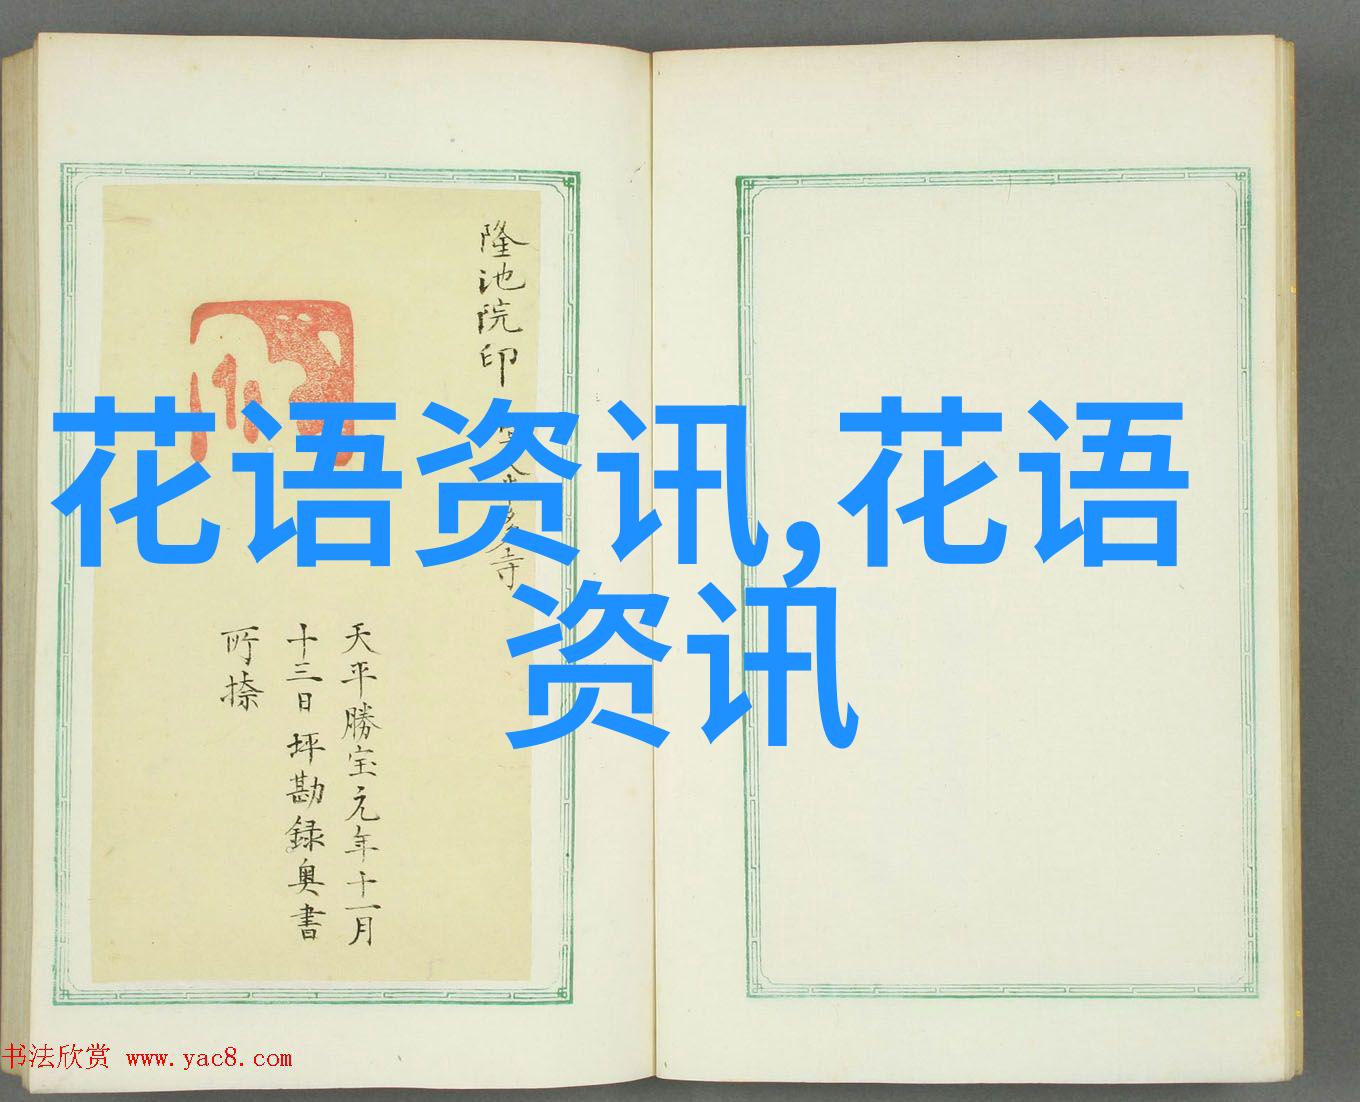 花语资讯,花语
资讯
隆池院印
寺
天平勝宝元年十一月
十三日 坪勘録奥書
所捺
书法欣赏 www.yac8.com